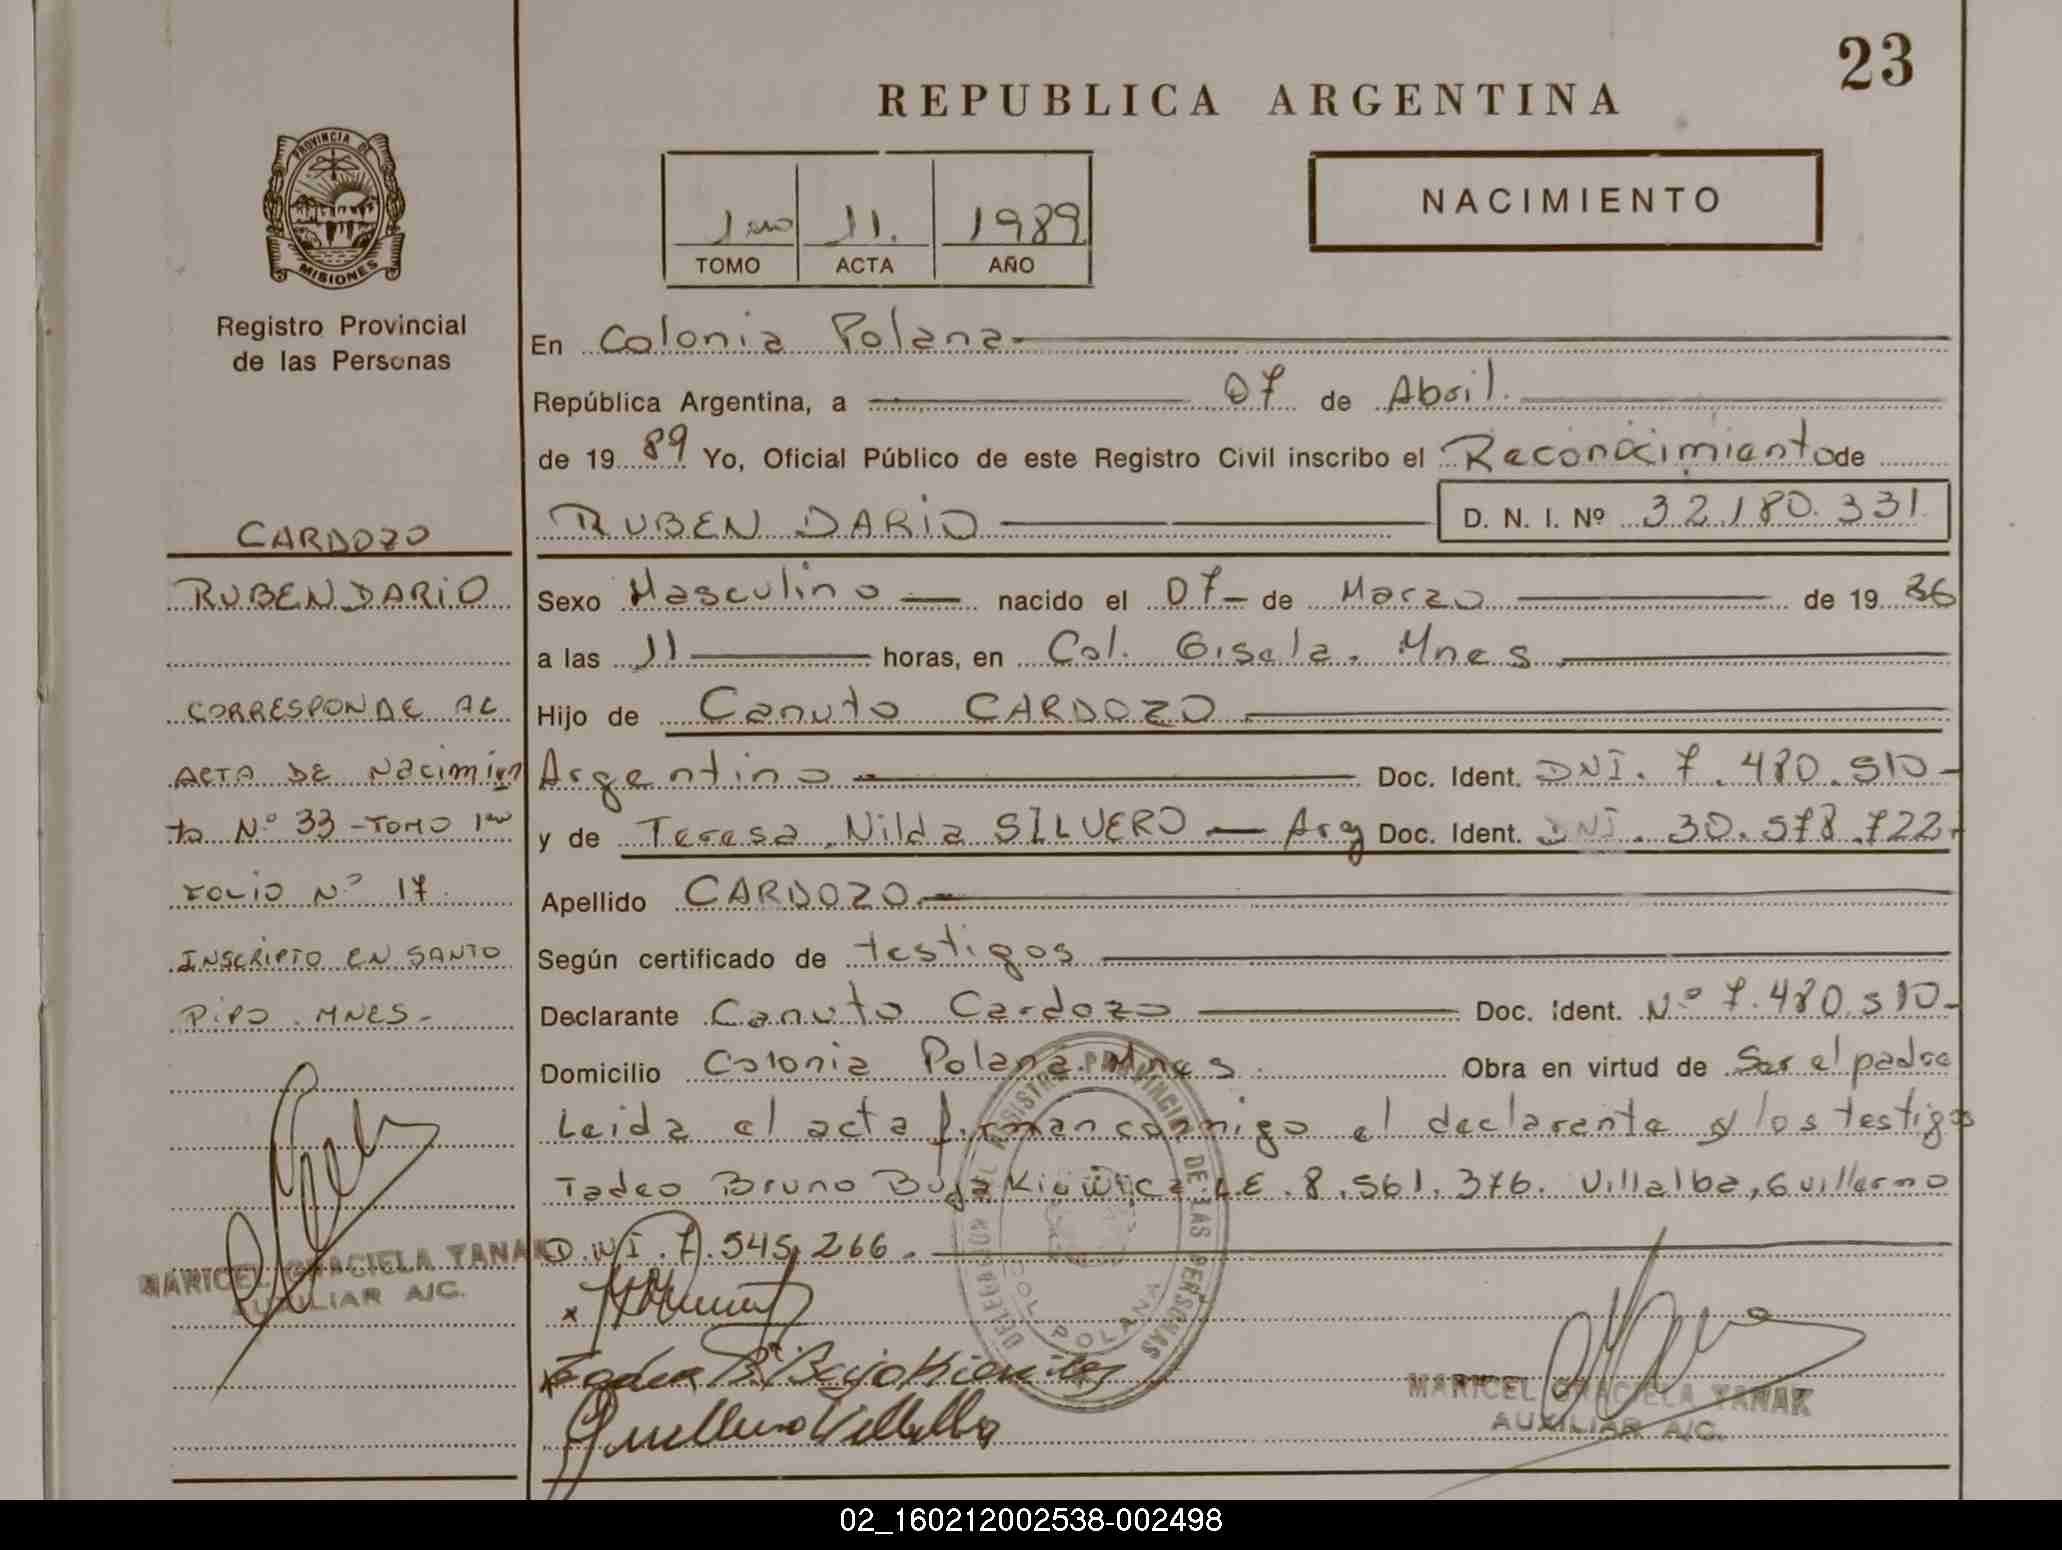 23
REPUBLICA ARGENTINA
PROVINCIA DE
MISIONES
1ero 11. 1989
TOMO ACTA AÑO
NACIMIENTO
Registro Provincial
de las Personas
CARDOZO
RUBEN DARIO
CORRESPONDE AL
ACTA DE Nacimien
to Nº 33 - TOMO 1ero
FOLIO Nº 17.
INSCRIPTO EN SANTO
PIPO. MNES-
MARICEL GRACIELA TANAK
AUXILIAR A/C.
En Colonia Polana
República Argentina, a 07 de Abril.
de 19 89 Yo, Oficial Público de este Registro Civil inscribo el Reconocimiento de
RUBEN DARIO D. N. I. Nº 32.180.331
Sexo Masculino nacido el 07 de Marzo de 19 86
a las 11 horas, en Col. Gisela. Mnes
Hijo de Canuto CARDOZO
Argentino Doc. Ident. DNI. 7.480.510-
y de Teresa Nilda SILVERO - Arg Doc. Ident. DNI. 30.578.722-
Apellido CARDOZO
Según certificado de testigos
Declarante Canuto Cardozo Doc. Ident. Nº 7.480.510-
Domicilio Colonia Polana. Mnes. Obra en virtud de Ser el padre
Leida el acta firman conmigo el declarante y los testigos
Tadeo Bruno L.E. 8.561.376. Villalba, Guillermo
D.N.I. 7.545.266.
DELEGACION REGISTRO PROVINCIAL DE LAS PERSONAS
COL. POLANA
Guillermo Villalba
MARICEL GRACIELA TANAK
AUXILIAR A/C.
02_160212002538-002498